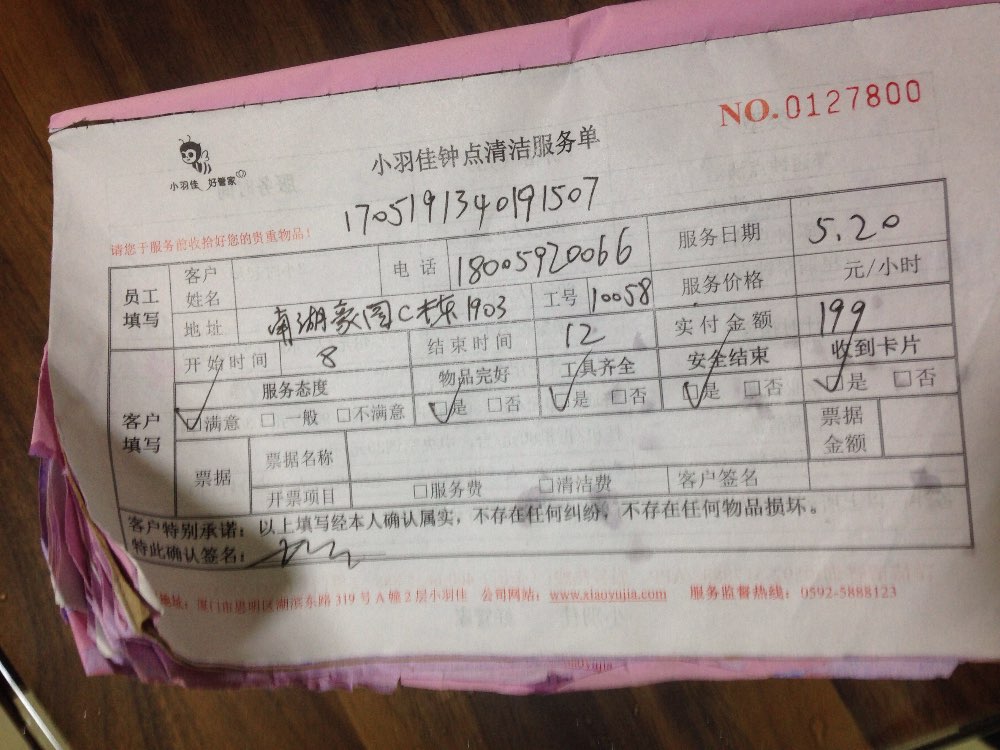 NO.0127800
小羽佳 好管家
小羽佳钟点清洁服务单
1705191340191507
请您于服务前收拾好您的贵重物品!
员工填写 客户姓名 电话 18005920066 服务日期 5.20
地址 南湖豪园C栋1903 工号 10058 服务价格 元/小时
开始时间 8 结束时间 12 实付金额 199
客户填写 服务态度 物品完好 工具齐全 安全结束 收到卡片
☑满意 □一般 □不满意 ☑是 □否 ☑是 □否 ☑是 □否 ☑是 □否
票据 票据名称 票据金额
开票项目 □服务费 □清洁费 客户签名
客户特别承诺:以上填写经本人确认属实,不存在任何纠纷,不存在任何物品损坏。
特此确认签名:
地址:厦门市思明区湖滨东路319号A幢2层小羽佳 公司网站:www.xiaoyujia.com 服务监督热线:0592-5888123